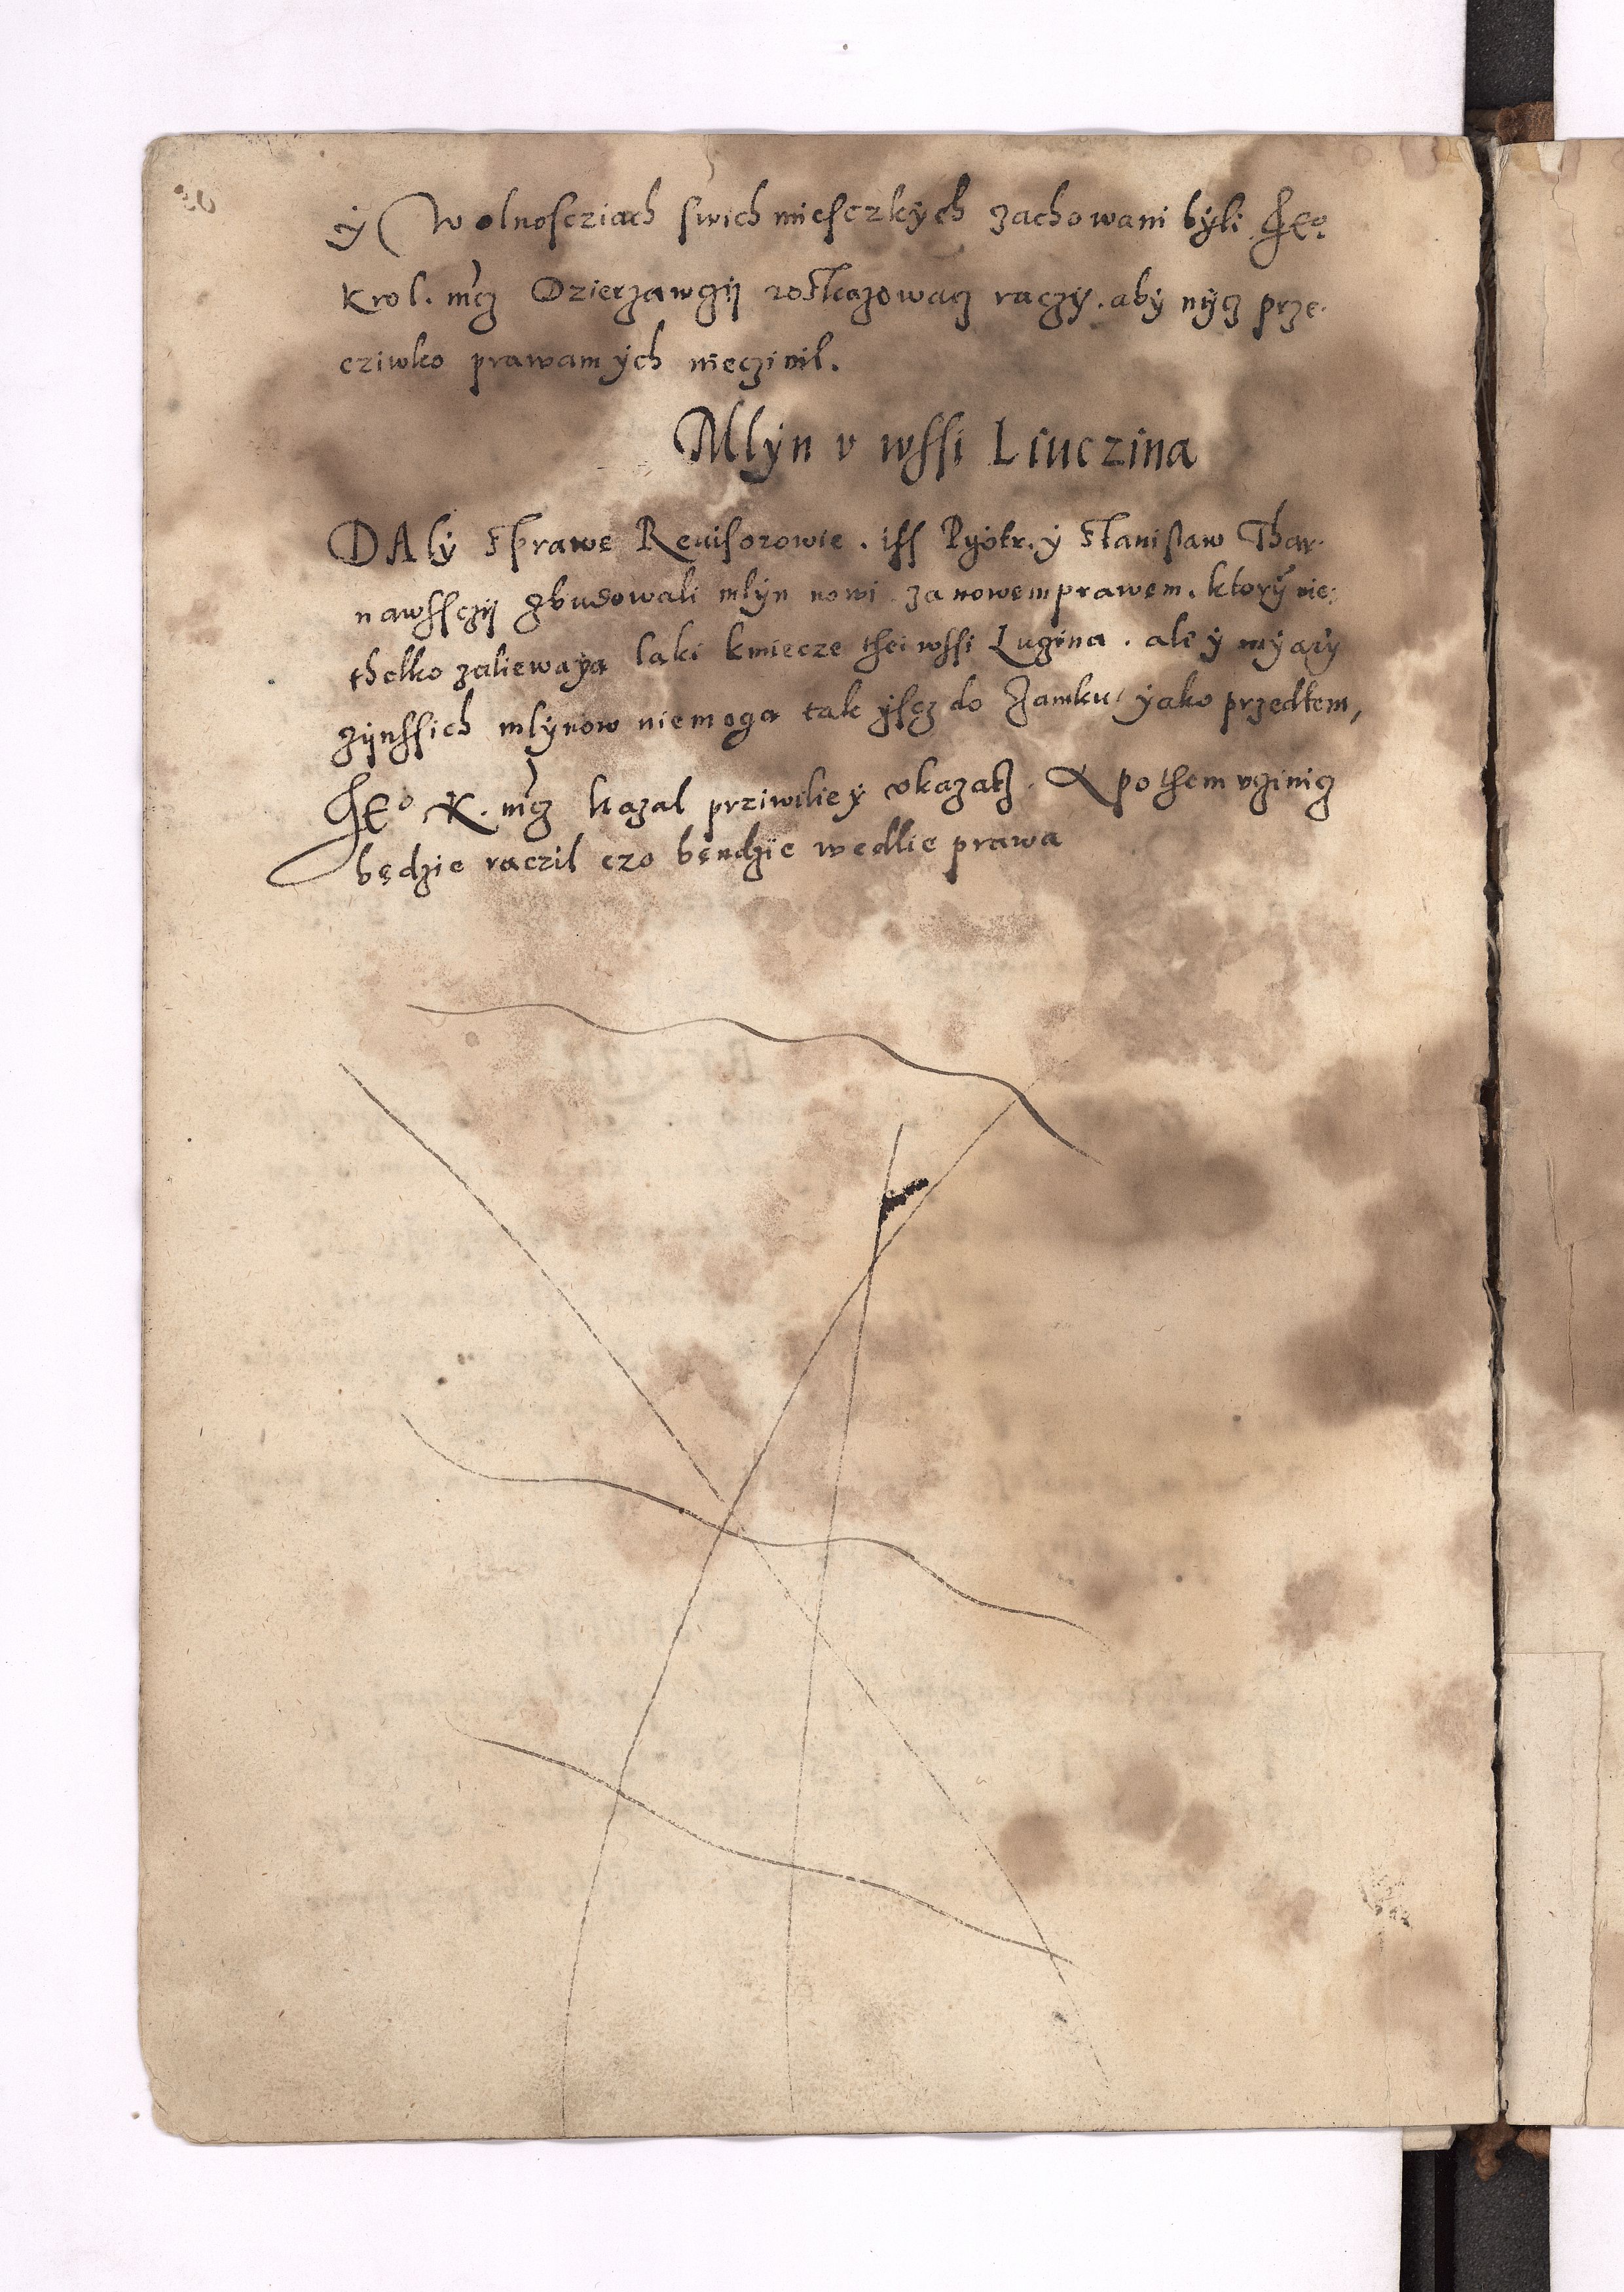 y Wolnosciach swich miesczkych zachowani byli Jeo
Krol. mcz Dzierzawczy roskazowacz raczy. aby nycz prze-
cziwko prawam ych nieczinil.
Mlyn v wssi Liuczina
DAly sprawe Reuisorowie. iss Pyotr. y Stanislaw Thar-
nawssczy zbudowali mlyn nowi za nowem prawem. ktory nie-
thelko zaliewaya laki kmiecze thei wssi Luczina. ale y myary
zynssich mlynow niemoga tak yscz do Zamku yako przedtem,
Jeo K. mcz kazal prziwiliey vkazacz. A po them vczinicz
będzie raczil czo bęndzie wedlie prawa